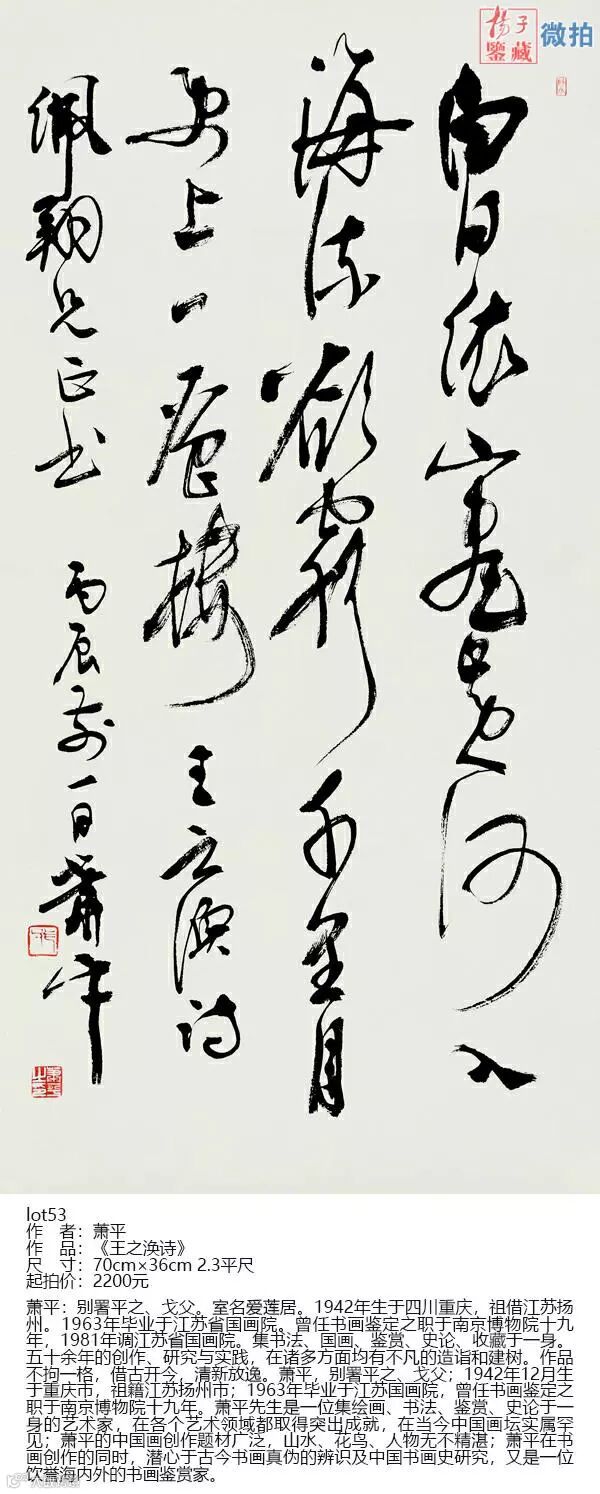 楊子
鑒藏
微拍
白日依山盡黄河入
海流欲窮千里目
更上一層樓 王之渙诗
佩翔兄正书 丙辰前一日萧平
lot53
作 者：萧平
作 品：《王之涣诗》
尺 寸：70cm×36cm 2.3平尺
起拍价：2200元
萧平：别署平之、戈父。室名爱莲居。1942年生于四川重庆，祖借江苏扬
州。1963年毕业于江苏省国画院。曾任书画鉴定之职于南京博物院十九
年，1981年调江苏省国画院。集书法、国画、鉴赏、史论、收藏于一身。
五十余年的创作、研究与实践，在诸多方面均有不凡的造诣和建树。作品
不拘一格，借古开今，清新放逸。萧平，别署平之、戈父；1942年12月生
于重庆市，祖籍江苏扬州市；1963年毕业于江苏国画院，曾任书画鉴定之
职于南京博物院十九年。萧平先生是一位集绘画、书法、鉴赏、史论于一
身的艺术家，在各个艺术领域都取得突出成就，在当今中国画坛实属罕
见；萧平的中国画创作题材广泛，山水、花鸟、人物无不精湛；萧平在书
画创作的同时，潜心于古今书画真伪的辨识及中国书画史研究，又是一位
饮誉海内外的书画鉴赏家。